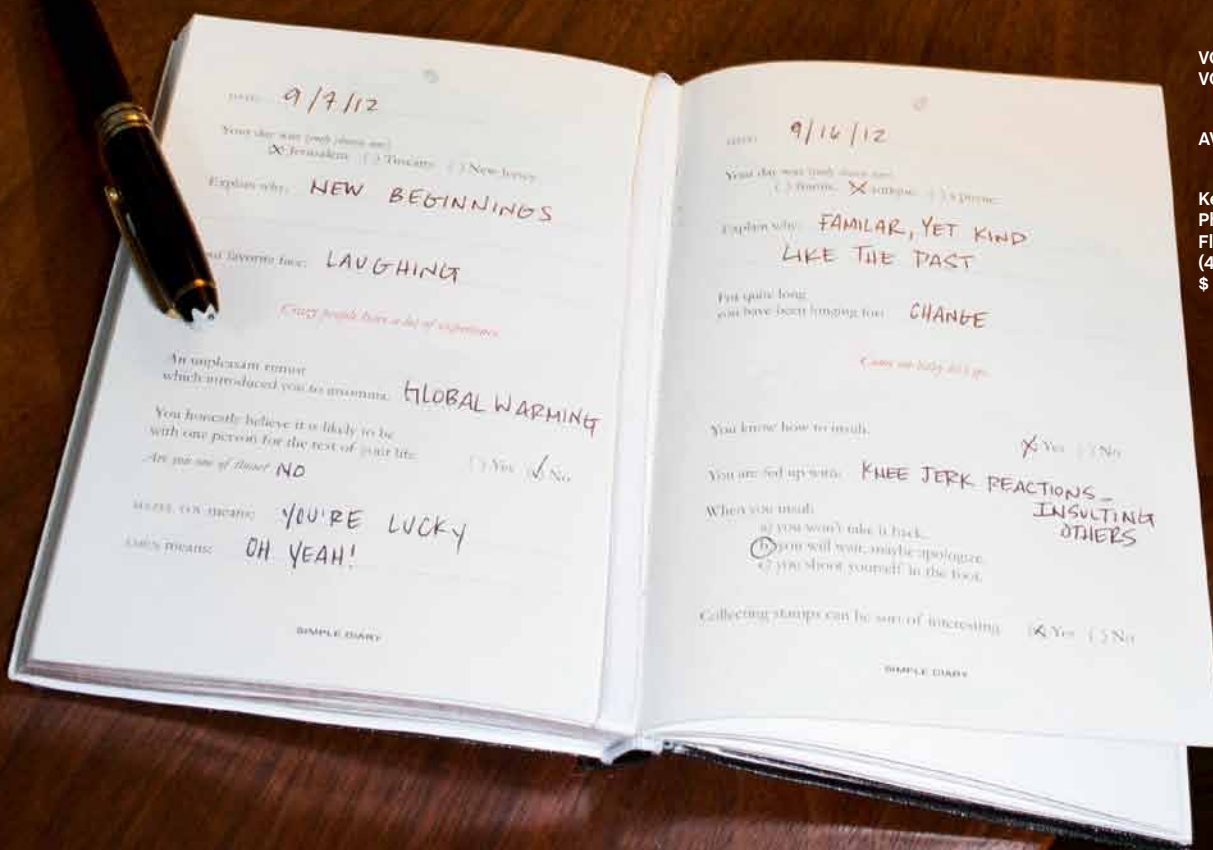 DATE: 9/7/12
Your day was (only choose one)
(X) Jerusalem ( ) Tuscany ( ) New Jersey
Explain why: NEW BEGINNINGS
favorite face: LAUGHING
Crazy people have a lot of experiences.
An unpleasant rumor
which introduced you to insomnia: GLOBAL WARMING
You honestly believe it is likely to be
with one person for the rest of your life. ( ) Yes (✓) No
Are you one of those? NO
MAZEL TOV means: YOU'RE LUCKY
AMEN means: OH YEAH!
SIMPLE DIARY
DATE: 9/16/12
Your day was (only choose one)
( ) (X) antique ( )
Explain why: FAMILAR, YET KIND
LIKE THE PAST
For quite long
you have been longing for: CHANGE
Come on baby
You know how to insult. (X) Yes ( ) No
You are fed up with: KNEE JERK REACTIONS-
INSULTING
OTHERS
When you insult
a) you won't take it back.
b) you will wait, maybe apologize.
c) you shoot yourself in the foot.
Collecting stamps can be sort of interesting. (X) Yes ( ) No
SIMPLE DIARY
$